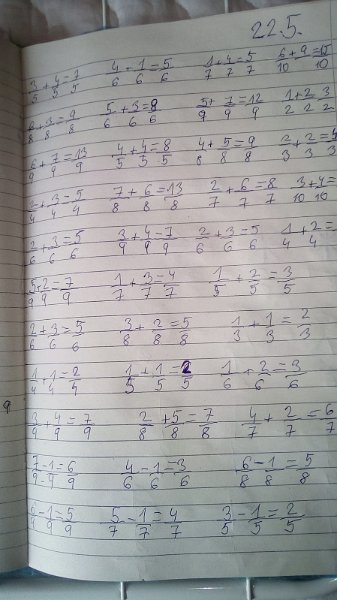 22.5.
3/5 + 4/5 = 7/5 4/6 - 1/6 = 5/6 1/7 + 4/7 = 5/7 6/10 + 9/10 = 15/10
6/8 + 3/8 = 9/8 5/6 + 3/6 = 8/6 5/9 + 7/9 = 12/9 1/2 + 2/2 = 3/2
6/9 + 7/9 = 13/9 4/5 + 4/5 = 8/5 4/8 + 5/8 = 9/8 2/3 + 2/3 = 4/3
2/4 + 3/4 = 5/4 7/8 + 6/8 = 13/8 2/7 + 6/7 = 8/7 3/10 + 4/10 =
2/6 + 3/6 = 5/6 3/9 + 4/9 = 7/9 2/6 + 3/6 = 5/6 1/4 + 2/4 =
5/9 + 2/9 = 7/9 1/7 + 3/7 = 4/7 1/5 + 2/5 = 3/5
2/6 + 3/6 = 5/6 3/8 + 2/8 = 5/8 1/3 + 1/3 = 2/3
1/4 + 1/4 = 2/ 1/5 + 1/5 = 2/5 1/6 + 2/6 = 3/6
3/9 + 4/9 = 7/9 2/8 + 5/8 = 7/8 4/7 + 2/7 = 6/7
7/9 - 1/9 = 6/9 4/6 - 1/6 = 3/6 6/8 - 1/8 = 5/8
6/9 - 1/9 = 5/9 5/7 - 1/7 = 4/7 3/5 - 1/5 = 2/5